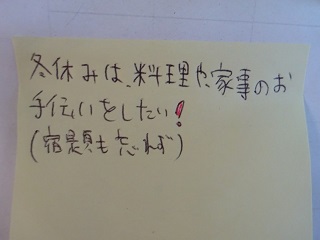 冬休みは、料理や、家事のお
手伝いをしたい!
(宿題も忘れず)